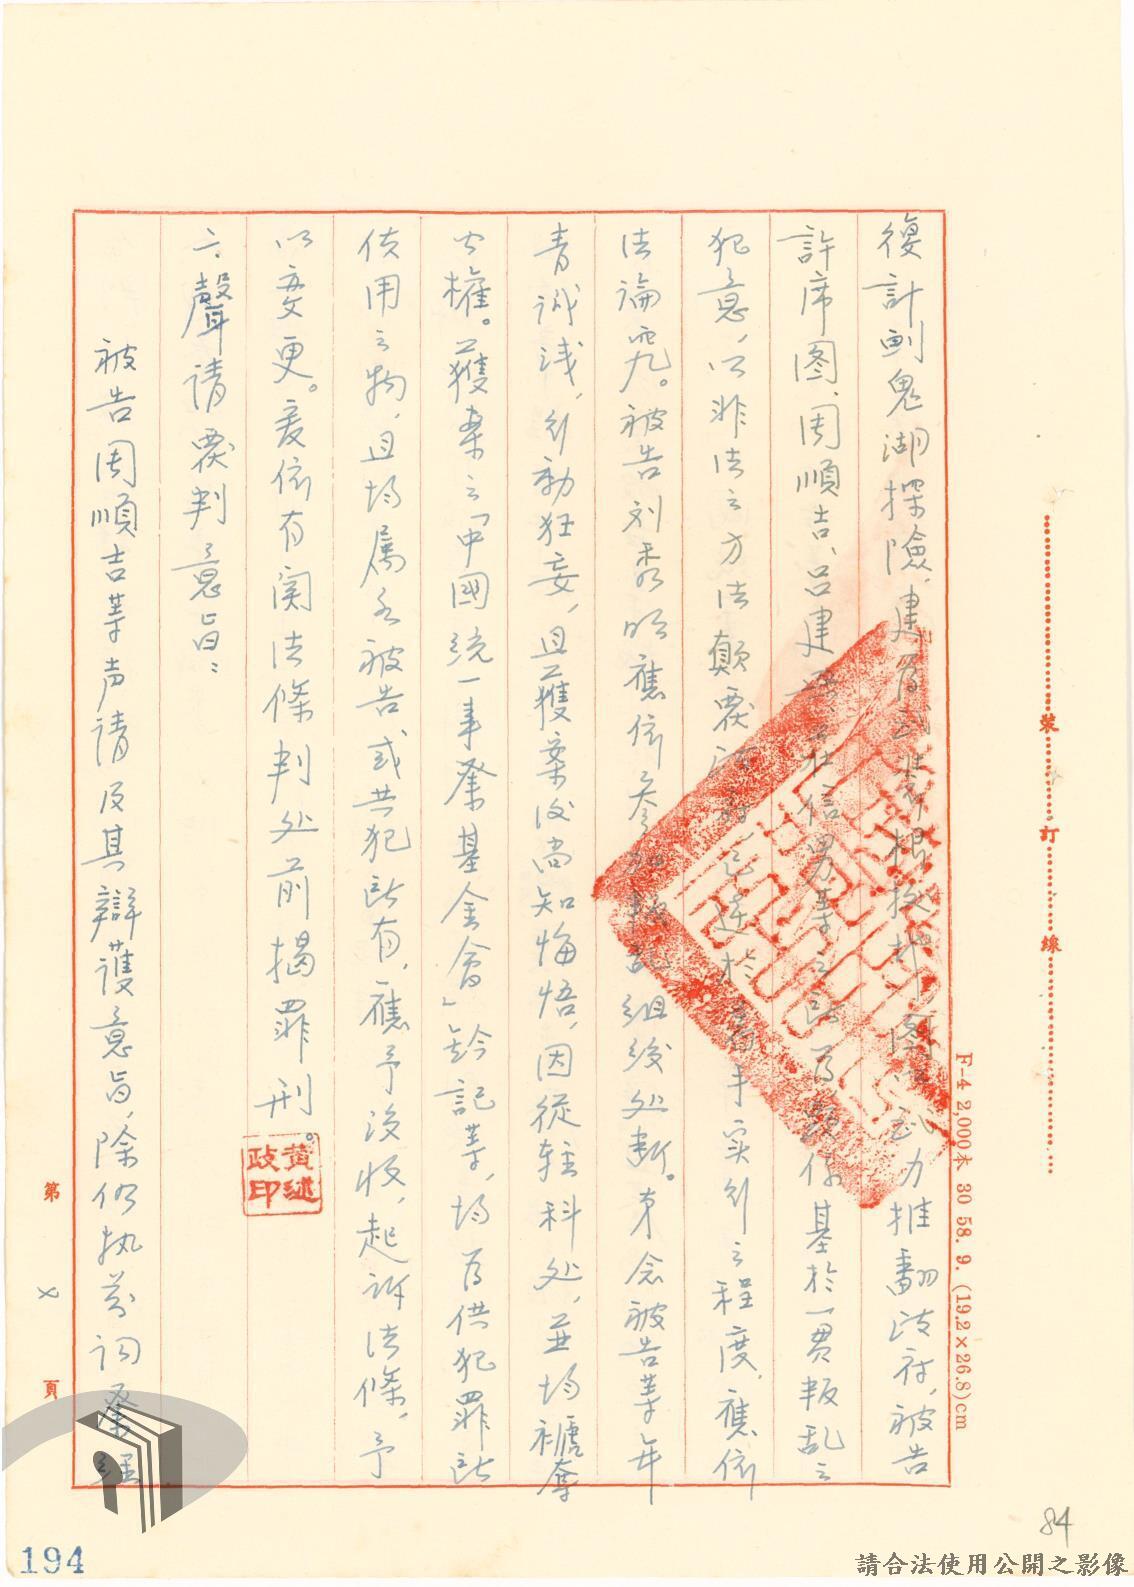 復計劃鬼湖探險，建為武裝根據地，圖以武力推翻政府，被告
許席图、周順吉、呂建興、莊信男等之所為，顯係基於一贯叛乱之
犯意，以非法之方法颠覆政府，已達於着手实行之程度，應依
法論究。被告刘秀明應依参加叛乱組織处断。茅念被告等年
青识浅，行動狂妄，且獲案後尚知悔悟，因從轻科处，並均褫奪
公權。獲案之「中國統一事業基金會」鈐記等，均为供犯罪所
使用之物，且均属各被告或共犯所有，應予没收，起诉法條，予
以变更。爰依有関法條判处前揭罪刑。
六、聲请覆判意旨：
被告周順吉等声请及其辯護意旨，除仍执前词業經
黃述政印
裝訂線
F-4 2,000本 30 58. 9. (19.2×26.8)cm
第 七 頁
84
194
請合法使用公開之影像